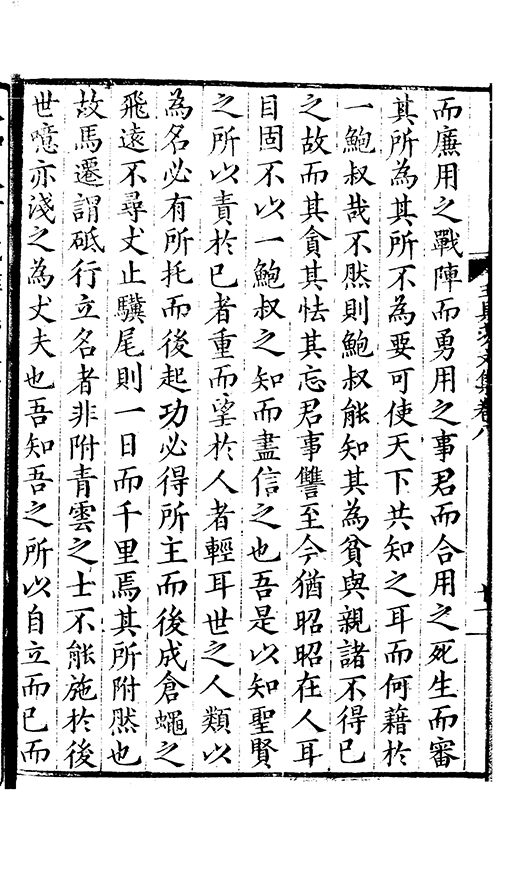 而廉用之戰陣而勇用之事君而合用之死生而審
其所為其所不為要可使天下共知之耳而何藉於
一鮑叔哉不然則鮑叔能知其為貧與親諸不得已
之故而其貪其怯其忘君事讐至今猶昭昭在人耳
目固不以一鮑叔之知而盡信之也吾是以知聖賢
之所以責於已者重而望於人者輕耳世之人類以
為名必有所托而後起功必得所主而後成倉蠅之
飛遠不尋丈止驥尾則一日而千里焉其所附然也
故馬遷謂砥行立名者非附青雲之士不能施於後
世噫亦淺之為丈夫也吾知吾之所以自立而已而